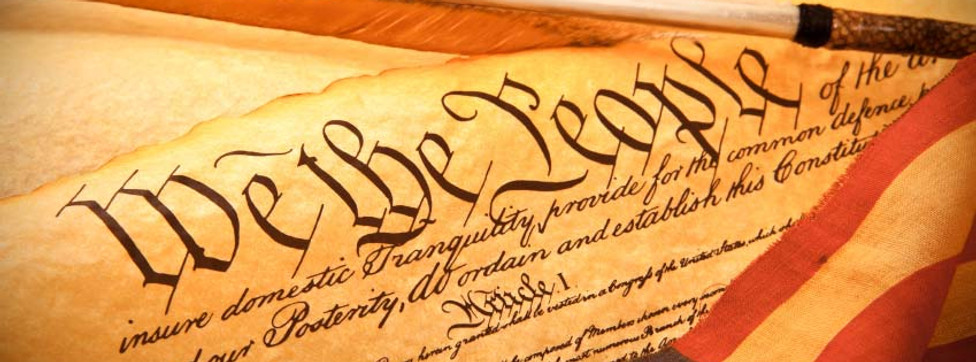 We the People of the Un
insure domestic Tranquility, provide for the common defence, p
our Posterity, do ordain and establish this Constitut
Article I
herein granted shall be vested in a Congress of the United States, which sh
be composed of Members chosen every
most numerous Branch of